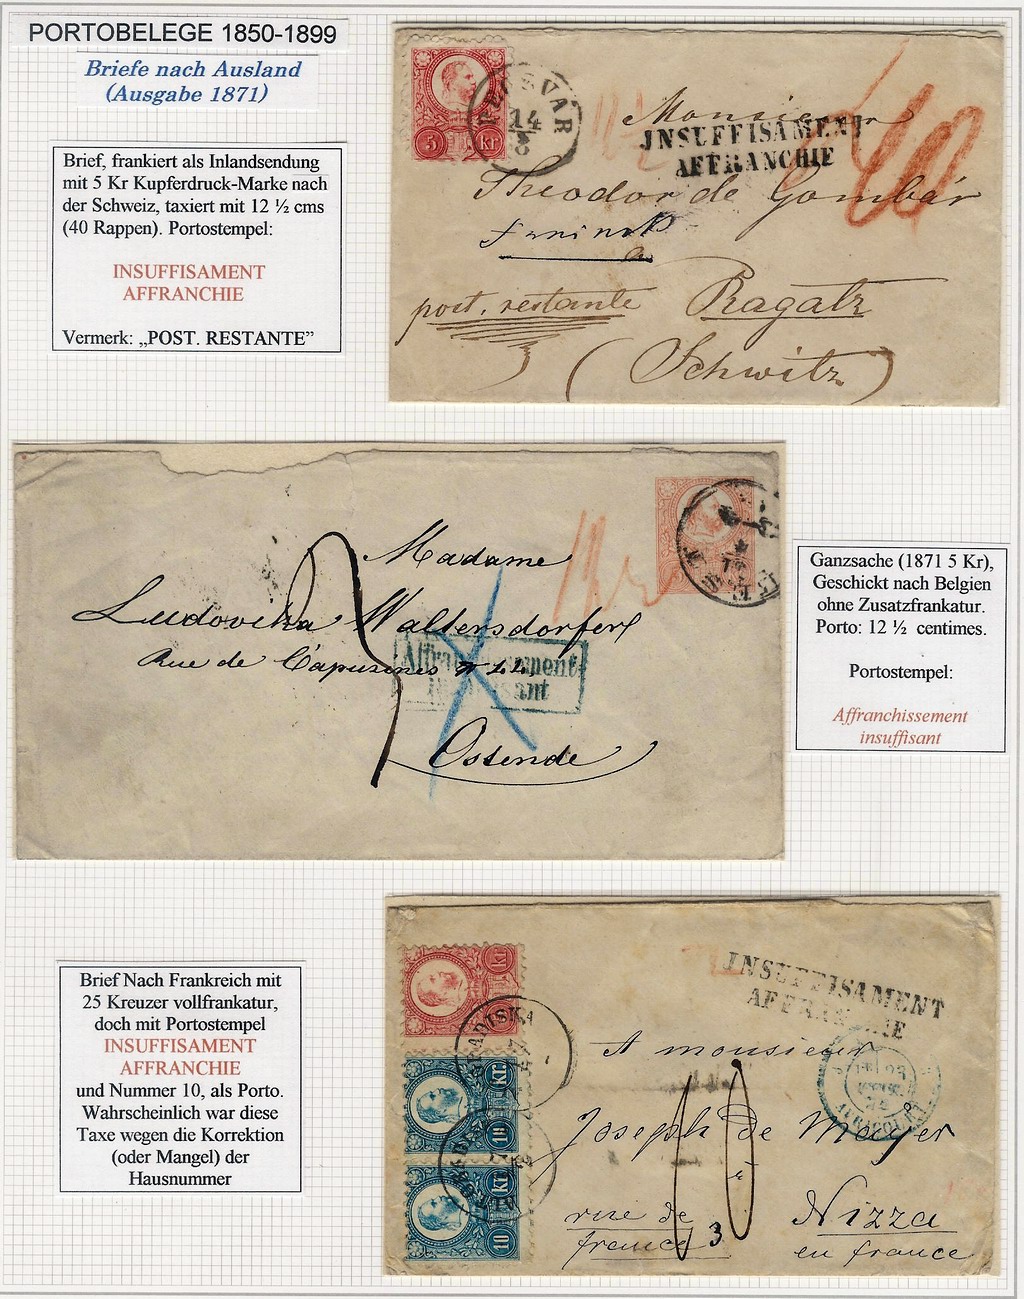 PORTOBELEGE 1850-1899
Briefe nach Ausland
(Ausgabe 1871)
Brief, frankiert als Inlandsendung
mit 5 Kr Kupferdruck-Marke nach
der Schweiz, taxiert mit 12 ½ cms
(40 Rappen). Portostempel:
INSUFFISAMENT
AFFRANCHIE
Vermerk: „POST. RESTANTE”
5 Kr
14
8
Monsieur
INSUFFISAMENT
AFFRANCHIE
40
Theodor de Gombár
post. restante Ragatz
(Schwitz)
Madame
Ludovika Waltersdorfer
Rue de Capucines № 44
Affranchissement
insuffisant
Ostende
PEST
Ganzsache (1871 5 Kr),
Geschickt nach Belgien
ohne Zusatzfrankatur.
Porto: 12 ½ centimes.
Portostempel:
Affranchissement
insuffisant
Brief Nach Frankreich mit
25 Kreuzer vollfrankatur,
doch mit Portostempel
INSUFFISAMENT
AFFRANCHIE
und Nummer 10, als Porto.
Wahrscheinlich war diese
Taxe wegen die Korrektion
(oder Mangel) der
Hausnummer
kr
10 kr
10 kr
INSUFFISAMENT
AFFRANCHIE
A monsieur
Joseph de Mayer
à
10
rue de
france 3
Nizza
en france